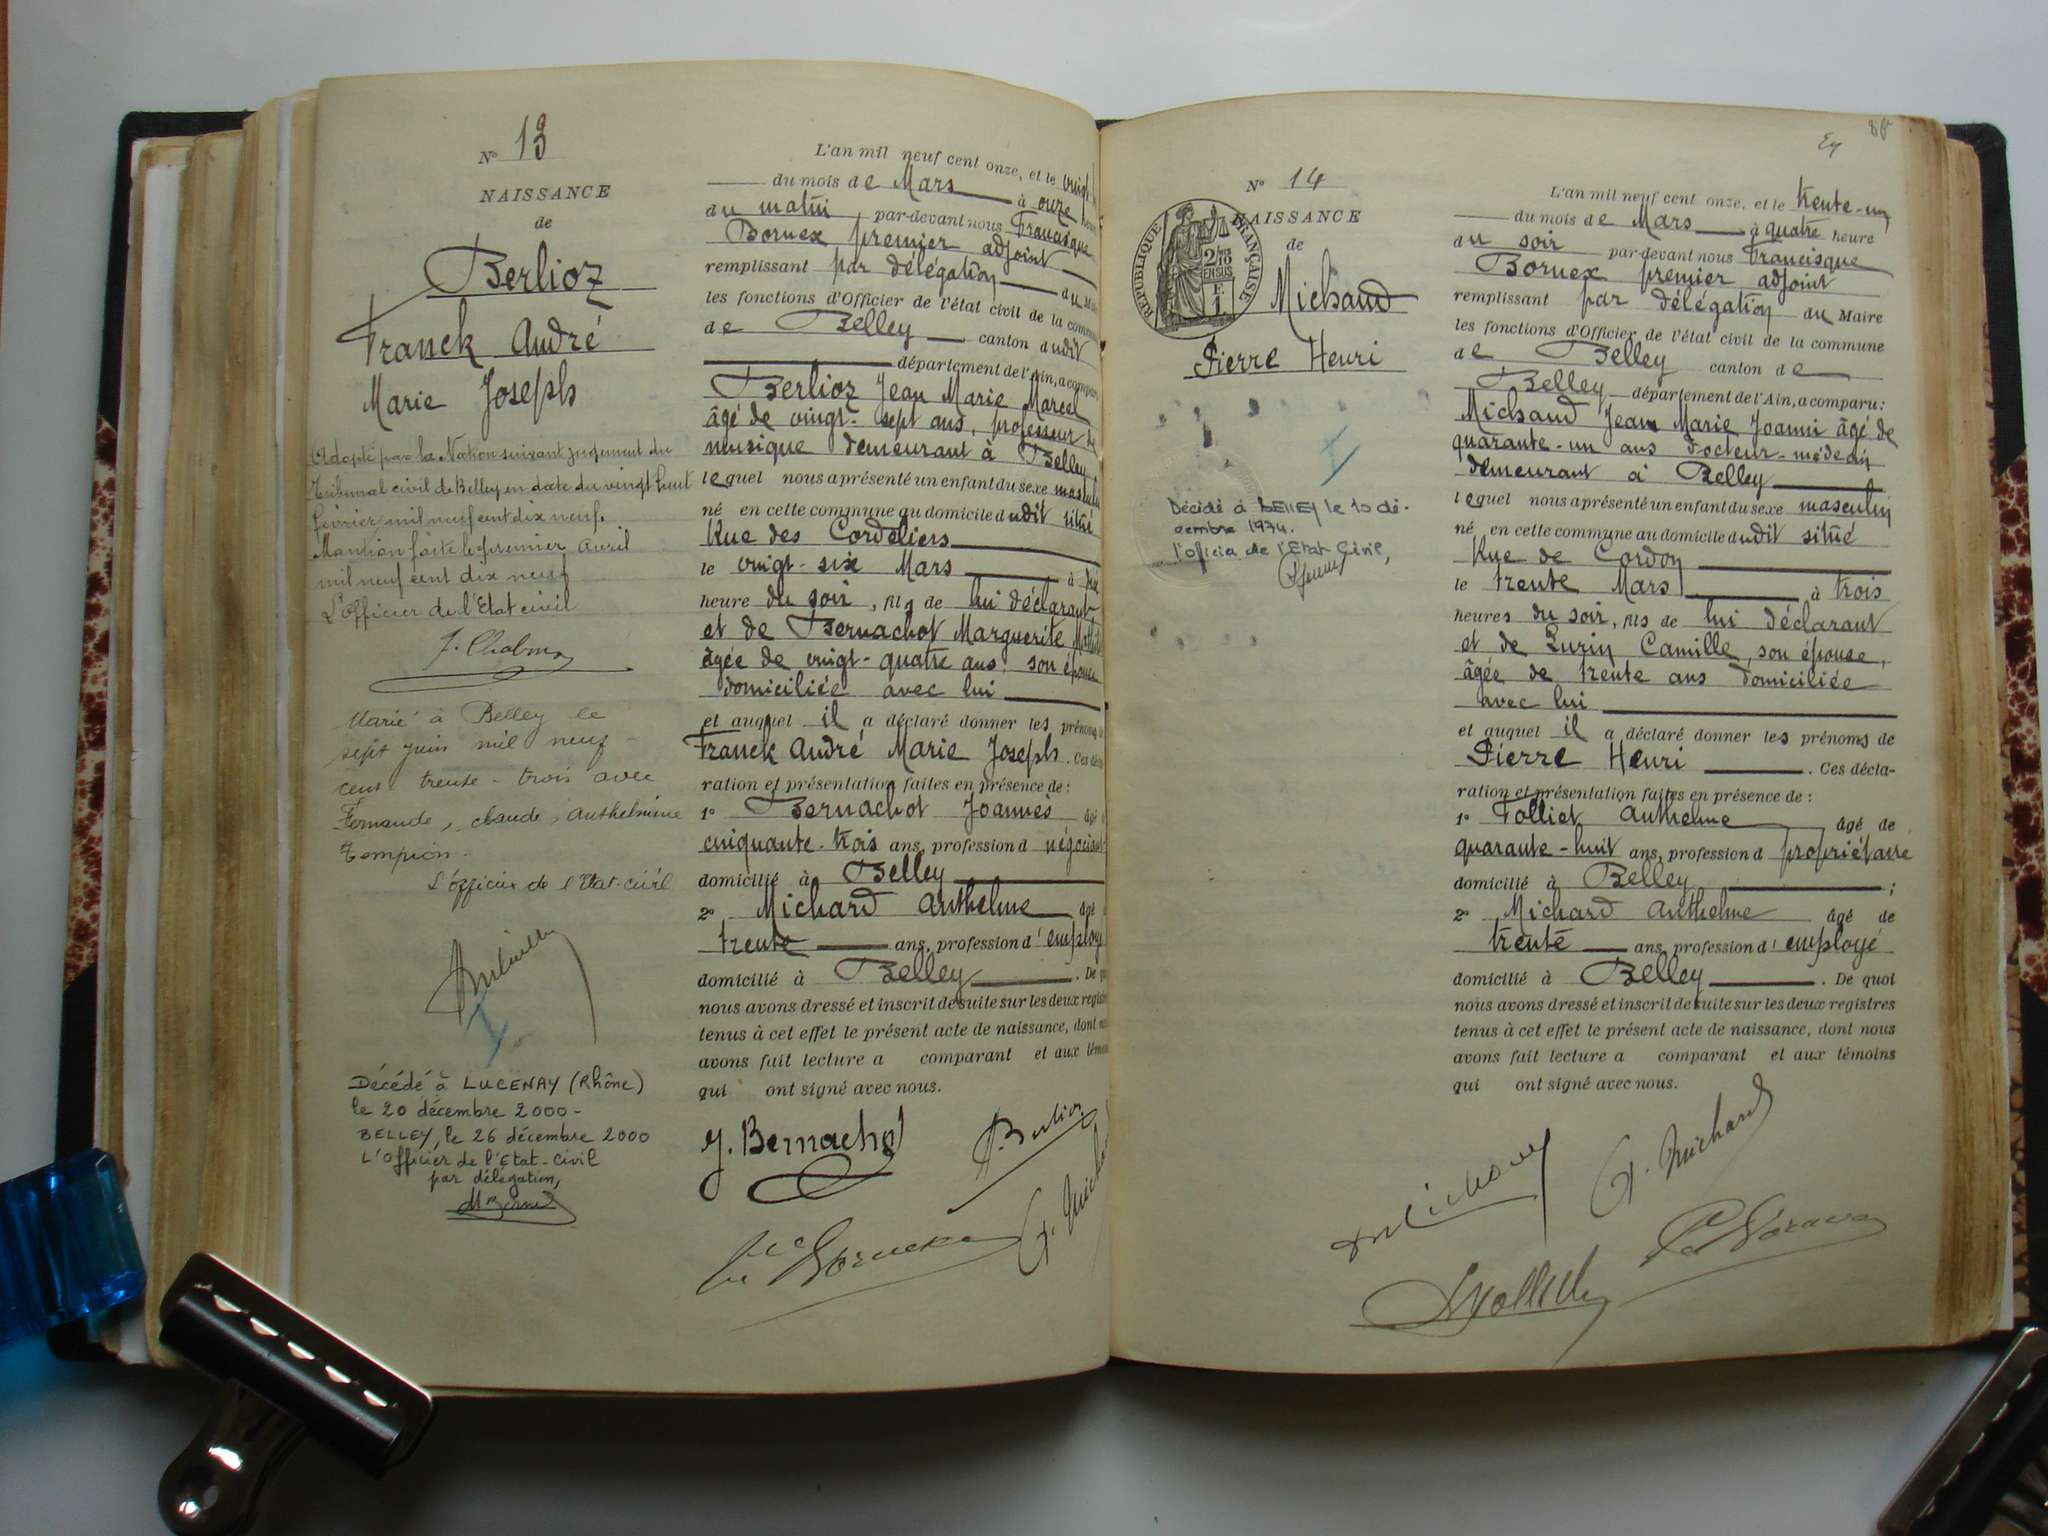 N° 13
NAISSANCE
de
Berlioz
Franck André
Marie Joseph
Adopté par la Nation suivant jugement du
Tribunal civil de Belley en date du vingt huit
février mil neuf cent dix neuf.
Mention faite le premier Avril
mil neuf cent dix neuf
L'officier de l'Etat civil
Marié à Belley le
sept juin mil neuf
cent trente-trois avec
Fernande, Claude, Anthelmine
Tempion.
L'officier de l'Etat-civil
Décédé à LUCENAY (Rhône)
le 20 décembre 2000-
BELLEY, le 26 décembre 2000
L'Officier de l'Etat-Civil
par délégation,
L'an mil neuf cent onze, et le vingt
du mois de Mars à onze
du matin par-devant nous Francisque
Bornex premier adjoint
remplissant par délégation du Maire
les fonctions d'Officier de l'état civil de la commune
de Belley canton dudit
département de l'Ain, a comparu
Berlioz Jean Marie Marcel
âgé de vingt-sept ans, professeur de
musique demeurant à Belley
lequel nous a présenté un enfant du sexe masculin
né en cette commune au domicile dudit situé
Rue des Cordeliers
le vingt-six Mars à
heure du soir, fils de lui déclarant,
et de Bernachot Marguerite
âgée de vingt-quatre ans, son épouse
domiciliée avec lui
et auquel il a déclaré donner les prénoms de
Franck André Marie Joseph. Ces décla-
ration et présentation faites en présence de:
1° Bernachot Joannès âgé
cinquante-trois ans, profession d négociant
domicilié à Belley
2° Michard Anthelme âgé
trente ans, profession d'employé
domicilié à Belley. De quoi
nous avons dressé et inscrit de suite sur les deux registres
tenus à cet effet le présent acte de naissance, dont nous
avons fait lecture a comparant et aux témoins
qui ont signé avec nous.
J. Bernachot
N° 14
NAISSANCE
de
RÉPUBLIQUE FRANÇAISE
Michaud
Pierre Henri
Décédé à BELLEY le 10 dé-
cembre 1974.
l'officier de l'Etat Civil,
L'an mil neuf cent onze, et le trente-un
du mois de Mars à quatre heure
du soir par-devant nous Francisque
Bornex premier adjoint
remplissant par délégation du Maire
les fonctions d'Officier de l'état civil de la commune
de Belley canton de
Belley département de l'Ain, a comparu:
Michaud Jean Marie Joanni âgé de
quarante-un ans Docteur-médecin
demeurant à Belley
lequel nous a présenté un enfant du sexe masculin
né en cette commune au domicile dudit situé
Rue de Cordon
le trente Mars à trois
heures du soir, fils de lui déclarant
et de Luzin Camille, son épouse,
âgée de trente ans domiciliée
avec lui
et auquel il a déclaré donner les prénoms de
Pierre Henri. Ces décla-
ration et présentation faites en présence de:
1° Folliet Anthelme âgé de
quarante-huit ans, profession d propriétaire
domicilié à Belley;
2° Michard Anthelme âgé de
trente ans, profession d'employé
domicilié à Belley. De quoi
nous avons dressé et inscrit de suite sur les deux registres
tenus à cet effet le présent acte de naissance, dont nous
avons fait lecture a comparant et aux témoins
qui ont signé avec nous.